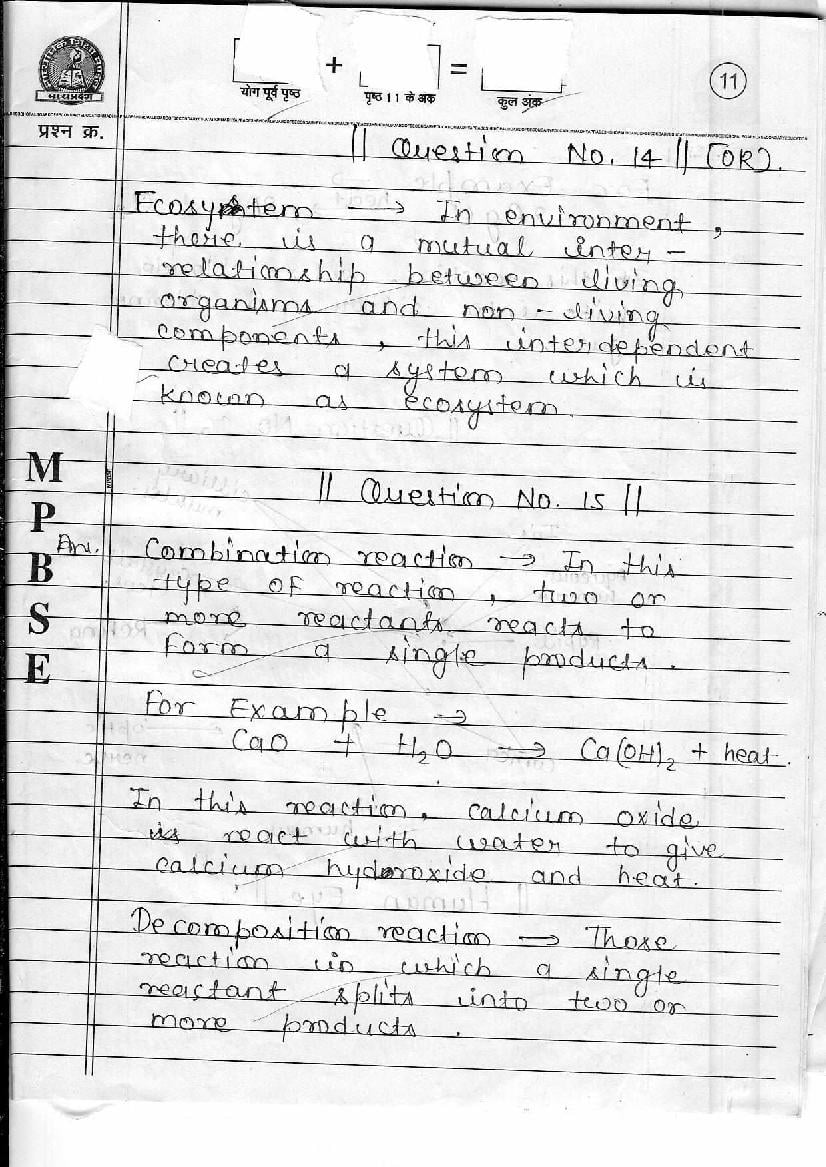 माध्यमिक शिक्षा मण्डल
मध्यप्रदेश
+ =
योग पूर्व पृष्ठ पृष्ठ 11 के अंक कुल अंक
11
प्रश्न क्र.
|| Question No. 14 || [OR].
Ecosystem → In environment,
there is a mutual inter-
relationship between living
organisms and non-living
components, this interdependent
creates a system which is
known as ecosystem.
M
P
B
S
E
|| Question No. 15 ||
Ans. Combination reaction → In this
type of reaction, two or
more reactants reacts to
form a single products.
For Example →
CaO + H₂O → Ca(OH)₂ + heat.
In this reaction, calcium oxide
is react with water to give
calcium hydoroxide and heat.
Decomposition reaction → Those
reaction in which a single
reactant splits into two or
more products.